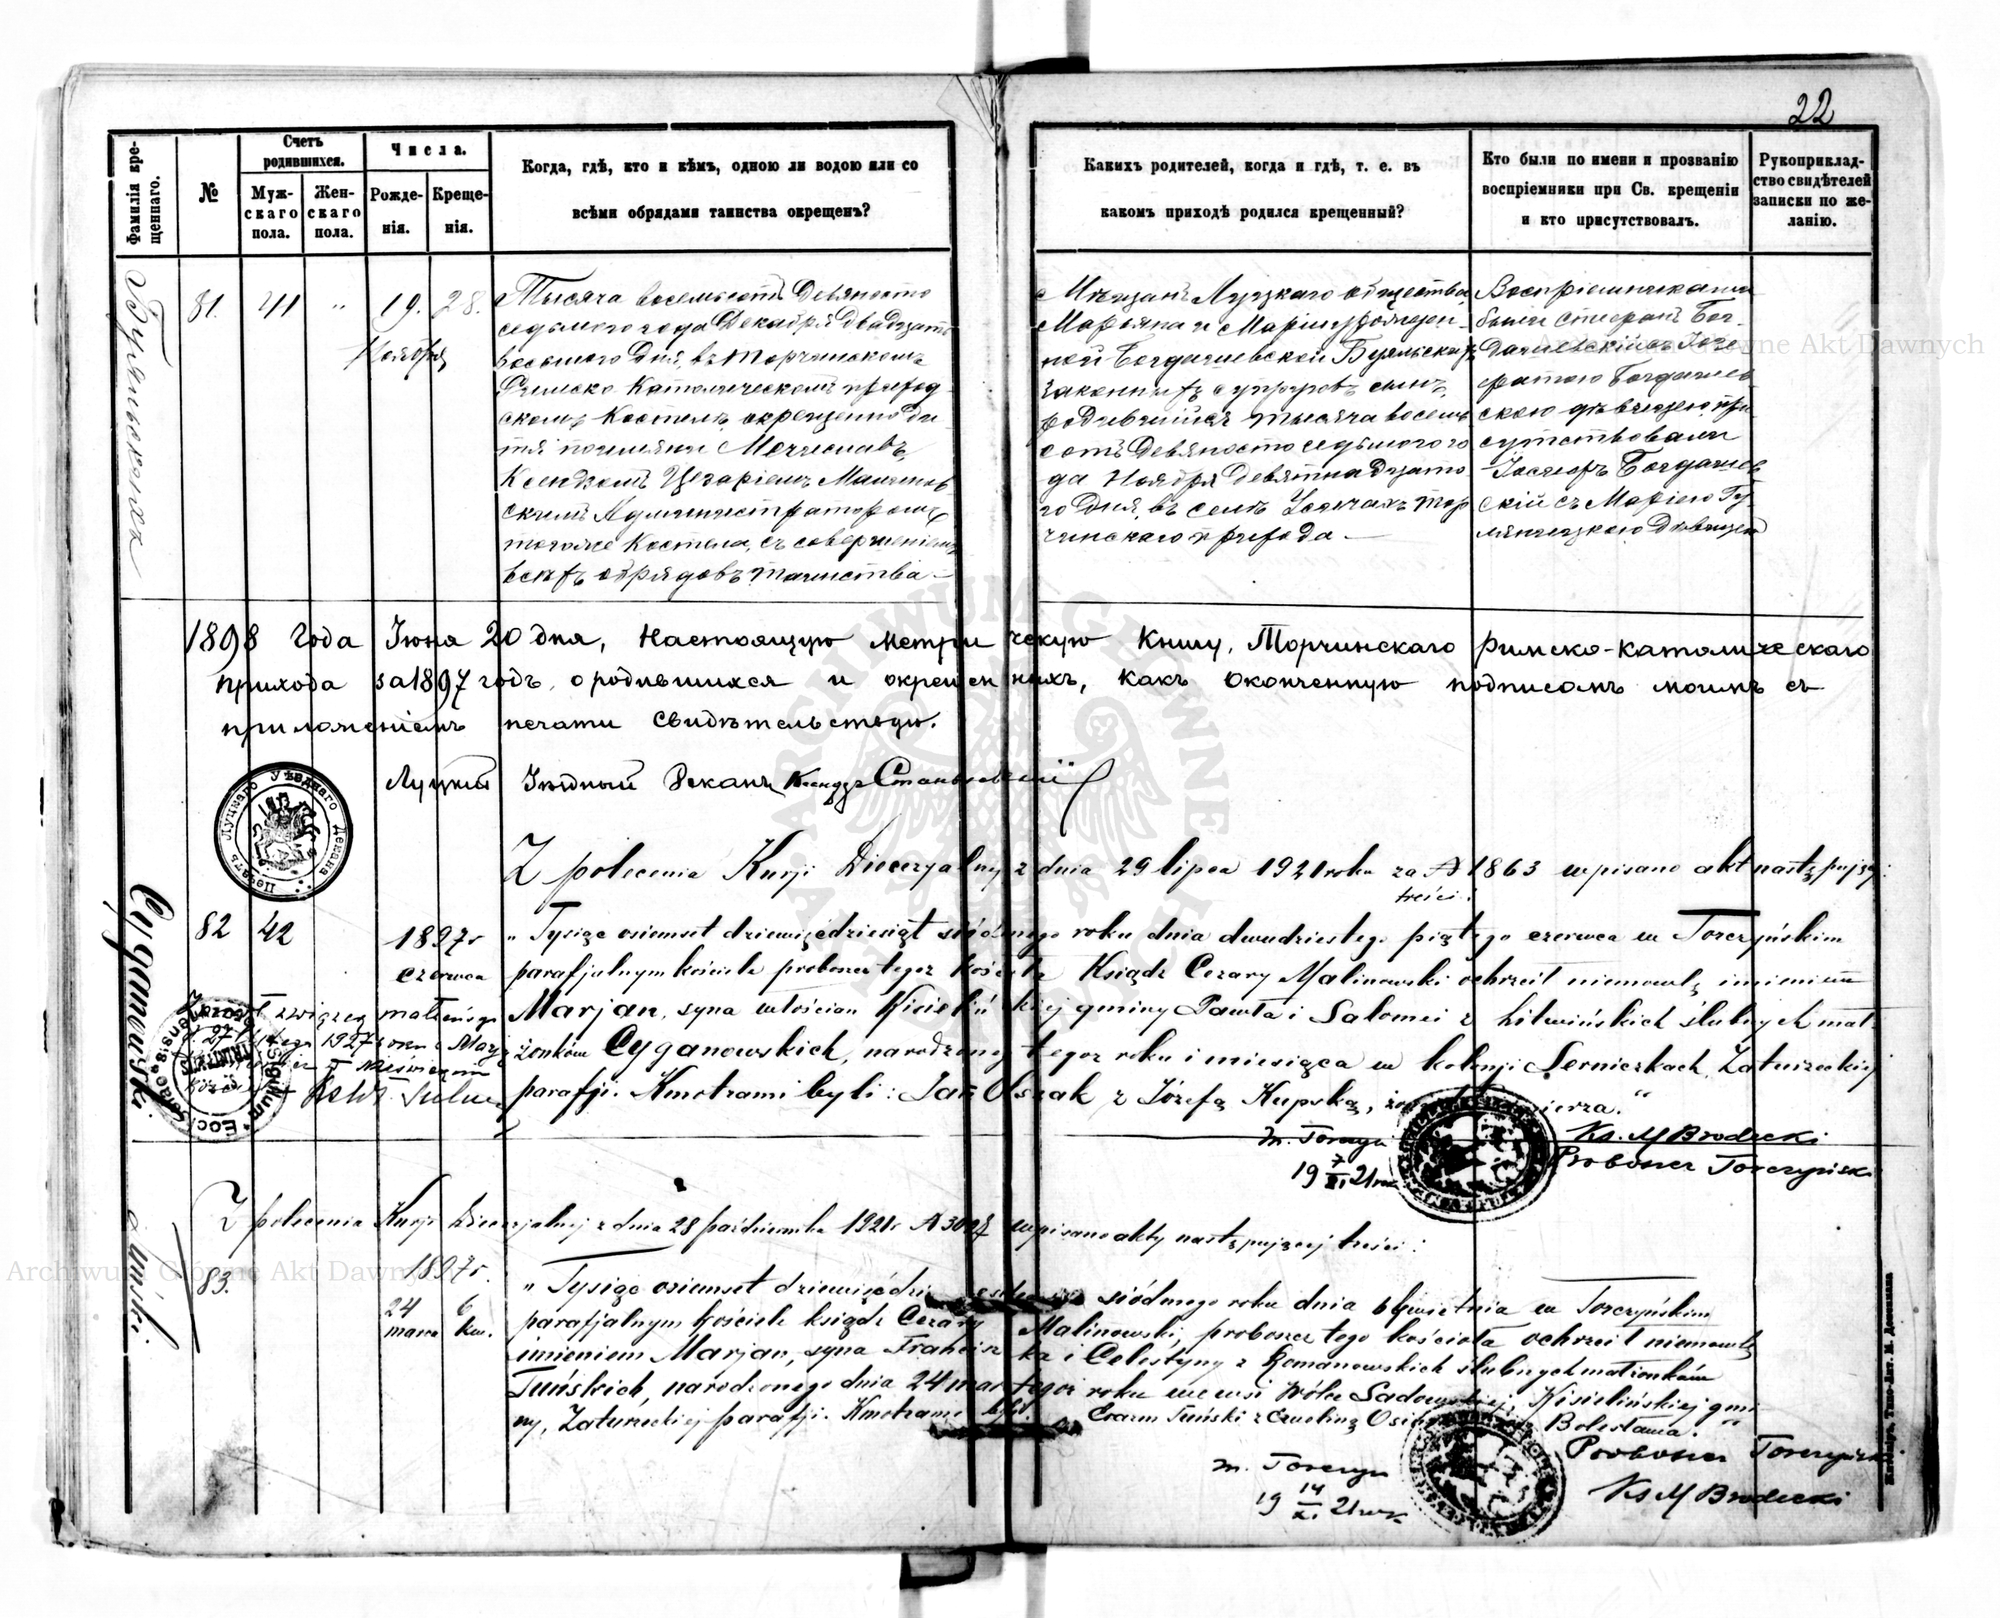 22
Фамилія крещеннаго.
№
Счетъ родившихся.
Мужскаго пола.
Женскаго пола.
Числа.
Рожденія.
Крещенія.
Когда, гдѣ, кто и кѣмъ, одною ли водою или со
всѣми обрядами таинства окрещенъ?
Какихъ родителей, когда и гдѣ, т. е. въ
какомъ приходѣ родился крещенный?
Кто были по имени и прозванію
воспріемники при Св. крещеніи
и кто присутствовалъ.
Рукоприклад-
ство свидѣтелей
записки по же-
ланію.
81. 41 " 19. 28.
Ноября
Тысяча восемьсотъ девяносто
седьмого года Декабря двадцать
восьмого дня, въ Торчинскомъ
Римско Католическомъ приход-
скомъ Костелѣ окрещено ди-
тя именемъ Мечиславъ,
Ксендзомъ Цезаріемъ Малинов
скимъ Администраторомъ
тогоже Костела, съ совершеніемъ
всѣхъ обрядовъ таинства
Мѣщанъ Луцкаго общества,
Марьяна и Маріи урожден-
ной Богдашевской
законныхъ супруговъ сынъ,
родившійся тысяча восемь
сотъ девяносто седьмого го
да Ноября девятнадцато
го дня, въ селѣ Усичахъ Тор
чинскаго прихода
Воспріемниками
были Стефанъ Бог-
дашевскій съ
Богдашев
скою дѣвицею, при
сутствовали
Іосифъ Богдашев
скій съ Маріею
дѣвицею
1898 года Іюня 20 дня, Настоящую метрическую Книгу, Торчинскаго римско-католическаго
прихода за 1897 годъ о родившихся и окрещенныхъ, какъ оконченную подписомъ моимъ съ
приложеніемъ печати свидѣтельствую.
Луцкій Уѣздный Деканъ Ксендзъ
Печать Луцкаго Уѣзднаго Декана
Z polecenia Kurji Diecezjalnej z dnia 29 lipca 1921 roku za № 1863 wpisano akt następującej
treści:
Cyganowski
82 42 1897 r
czerwca
"Tysiąc osiemset dziewięćdziesiąt siódmego roku dnia dwudziestego piątego czerwca w Torczyńskim
parafjalnym kościele proboszcz tegoż kościoła Ksiądz Cezary Malinowski ochrzcił niemowlę imieniem
Marjan, syna włościan Kisielińskiej gminy Pawła i Salomei z Litwińskich ślubnych mał-
żonków Cyganowskich, narodzonego tegoż roku i miesiąca w kolonji Serniczkach, Zaturzeckiej
parafji. Kmotrami byli: Jan Olszak z Józefą Kupską,
m. Torczyn
19 7/XI 21 rok
Ks. M Brodecki
Proboszcz Torczyński
Z polecenia Kurji Diecezjalnej z dnia 28 października 1921 r № wpisano akty następującej treści:
Tuński
83. 1897 r.
24 marca
6 kw.
"Tysiąc osiemset dziewięćdziesiąt siódmego roku dnia 6 kwietnia w Torczyńskim
parafjalnym kościele ksiądz Cezary Malinowski, proboszcz tego kościoła ochrzcił niemowlę
imieniem Marjan, syna Franciszka i Celestyny z Romanowskich ślubnych małżonków
Tuńskich, narodzonego dnia 24 marca tegoż roku we wsi Wólce Sadowskiej, Kisielińskiej gmi-
ny, Zaturzeckiej parafji. Kmotrami byli: Erazm Tuński z
m. Torczyn
19 14/XI 21 rok
Proboszcz Torczyński
Ks M Brodecki
Archiwum Główne Akt Dawnych
ARCHIWUM GŁÓWNE AKT DAWNYCH